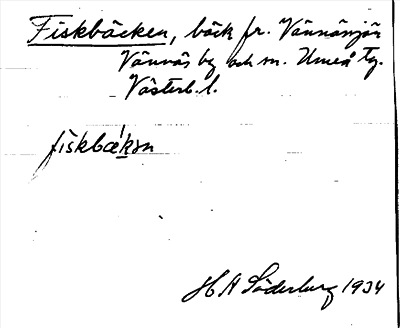 Fiskbäcken, bäck fr. Vännänjön
Vännäs by och sn. Umeå tg.
Västerb. l.
fiskbæ̀kən
H A Söderberg 1934